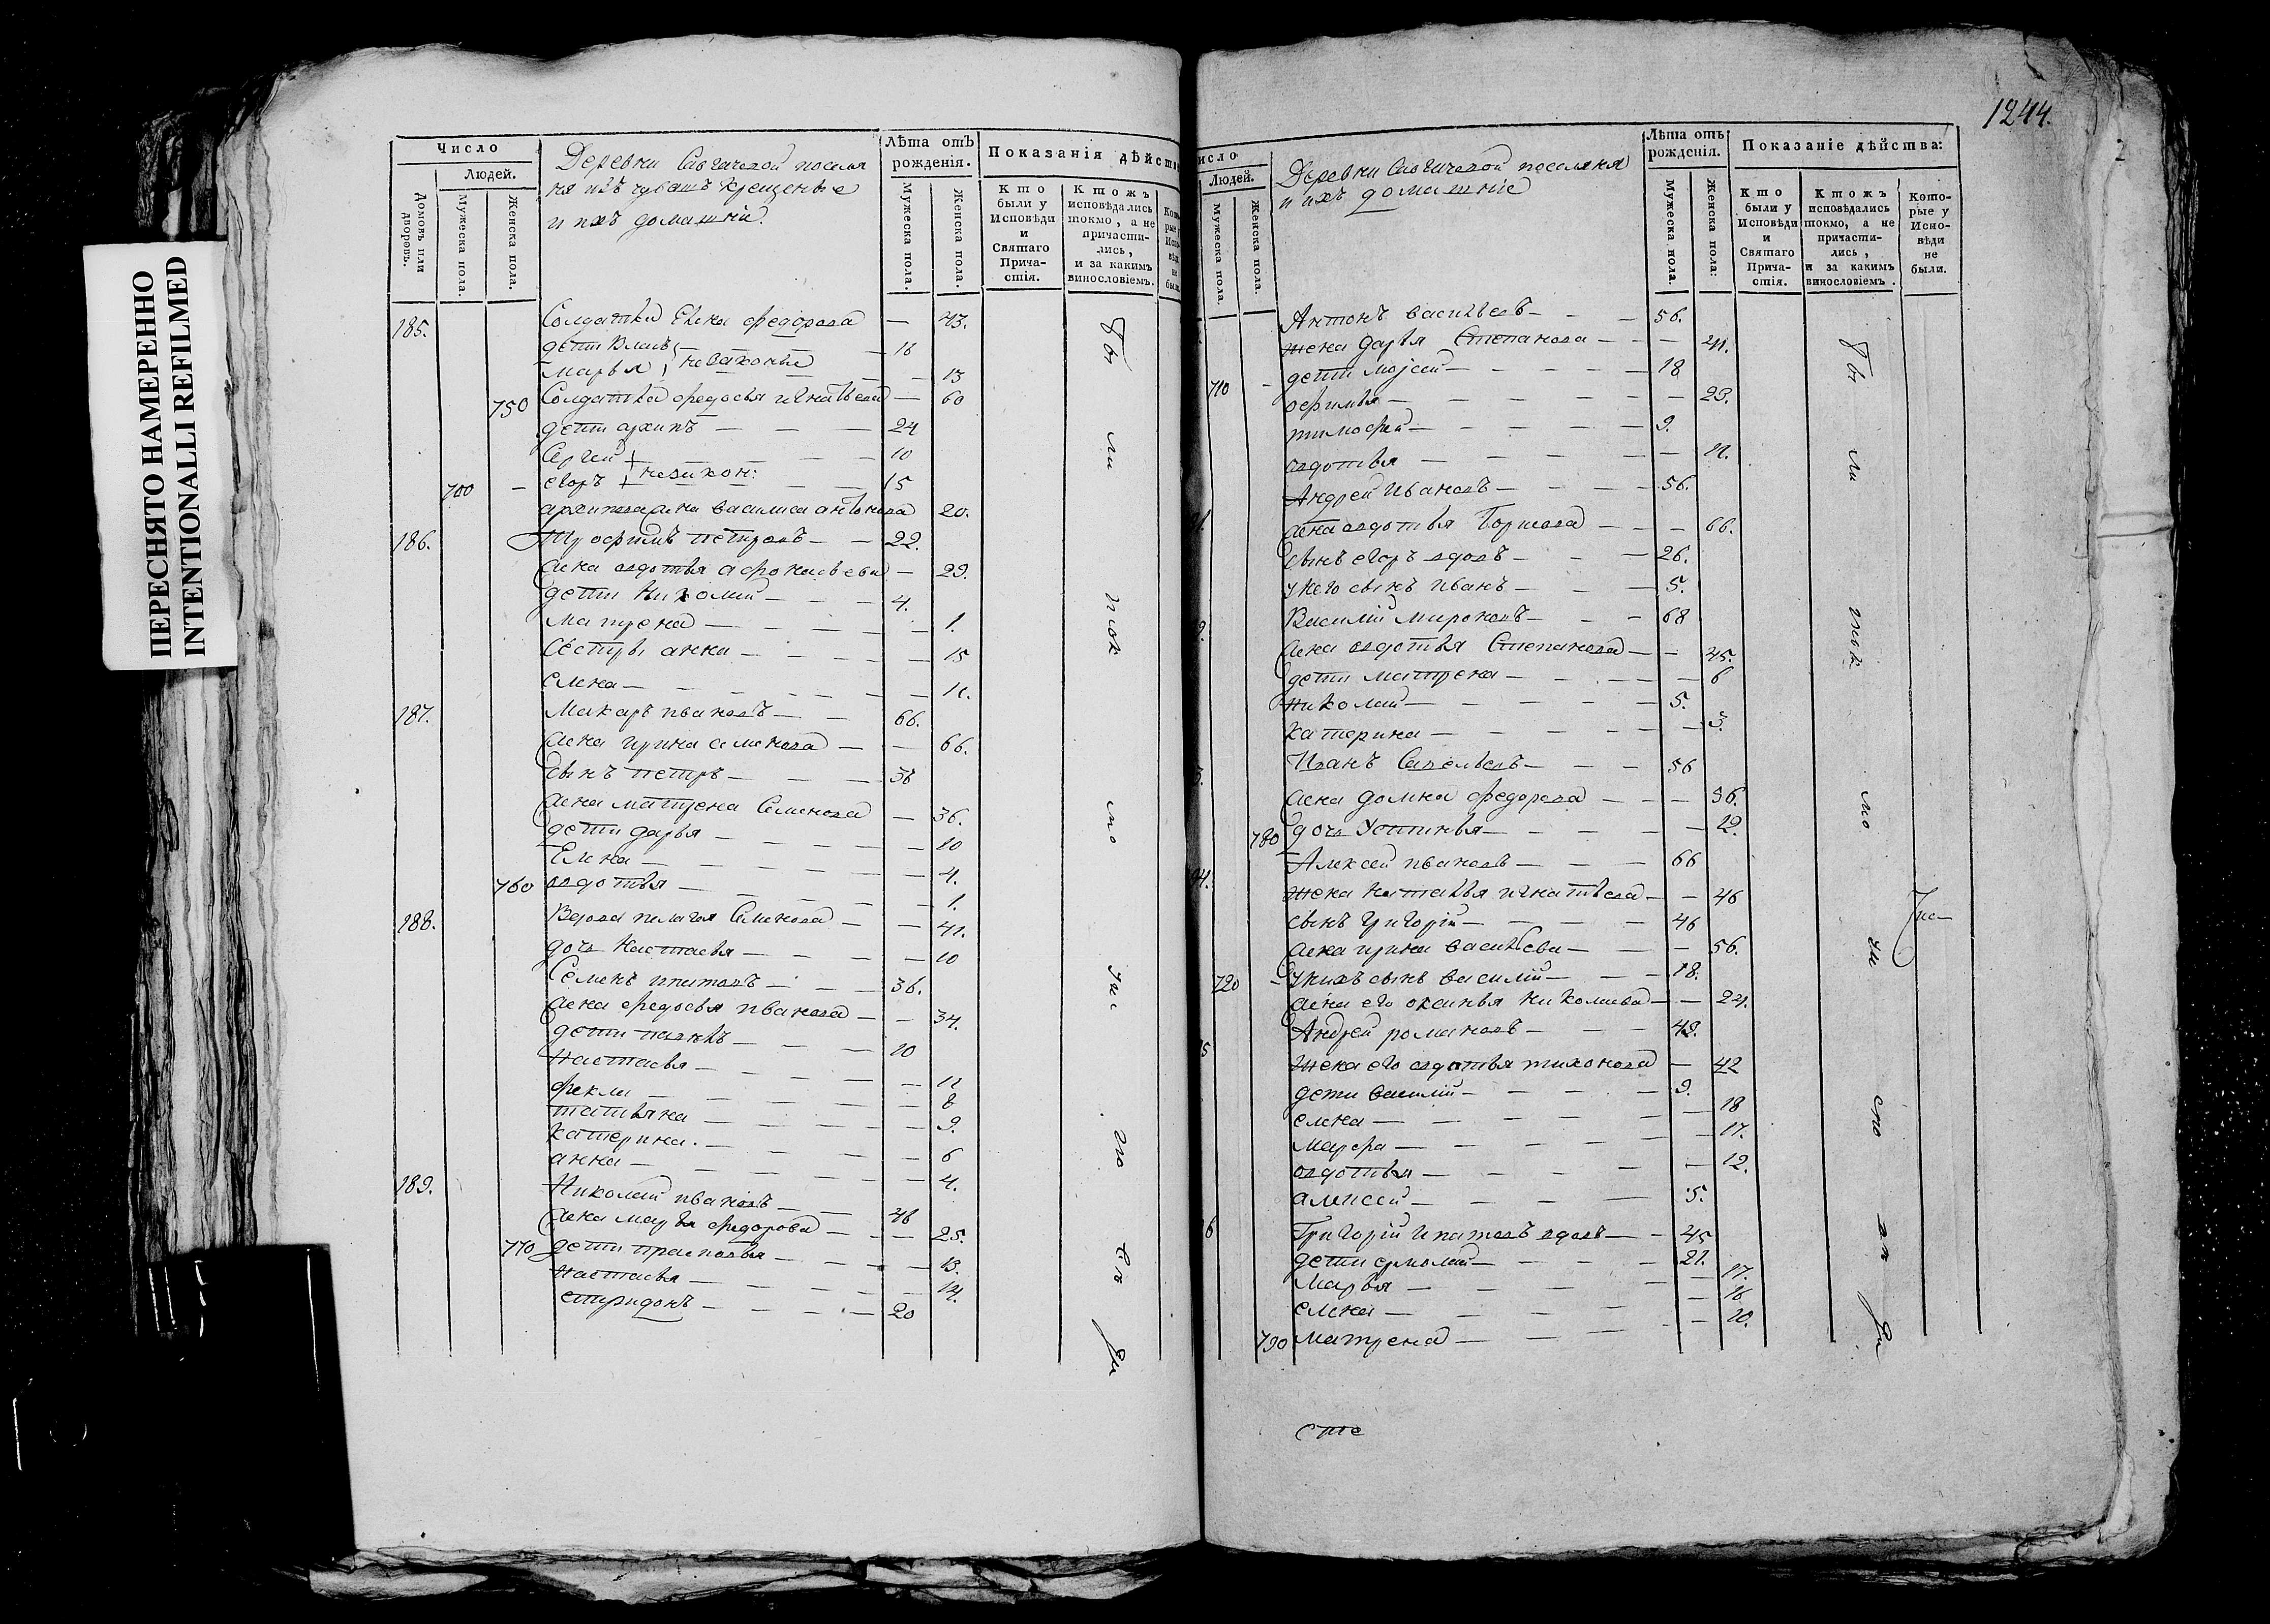 ПЕРЕСНЯТО НАМЕРЕННО
INTENTIONALLI REFILMED
Число
Людей.
Домовъ или дворовъ.
Мужеска пола.
Женска пола.
Деревни поселя
не изъ чувашъ крещеные
и ихъ домашнiи.
Лѣта отъ рожденія.
Мужеска пола.
Женска пола.
Показанія дѣйств
Кто были у Исповѣди и Святаго Прича-стія.
Ктожъ исповѣдались токмо, а не причасти-лись, и за какимъ винословіемъ.
185. Солдатка Елена федорова — 43.
дети Власъ — 18
марья незаконные — 13
750 Солдатка федосья игнатьева — 60
дети архипъ — 24
Сергей — 10
700 — егоръ незакон: — 15
архипова жена василиса антонова 20.
186. Трофимъ петровъ — 22.
жена авдотья — 29.
дети Николай — 4.
матрена — 1.
Сестры анна — 15
елена — 11.
187. Макаръ ивановъ — 66.
жена ирина семенова — 66.
сынъ петръ — 38
жена матрена Семенова — 36.
дети дарья — 10
Елена — 4.
760 авдотья — 1.
188. Вдова пелагея Семенова — 41.
дочь Настасья — 10
Семенъ ипатовъ — 36.
жена федосья иванова — 34.
дети — 10
Настасья — 11
фекла — 8
татьяна — 9.
катерина — 6
анна — 4.
189. Николай ивановъ — 46
жена марья федорова — 25.
770 дети прасковья — 13.
настасья — 14.
спиридонъ — 20
1244.
исло
Людей.
Мужеска пола.
Женска пола.
Деревни поселяня
и ихъ домашнiе
Лѣта отъ рожденія.
Мужеска пола.
Женска пола:
Показаніе дѣйства:
Кто были у Исповѣди и Святаго Прича-стія.
Ктожъ исповѣдались токмо, а не причасти-лись, и за какимъ винословіемъ.
Кото-рые у Испо-вѣди не были.
Антонъ васильевъ — 56.
жена дарья Степанова — 41.
710 — дети Мојсей — 18
офимья — 23.
тимофей — 9.
авдотья — 11.
Андрей Ивановъ — 56.
жена авдотья — 66.
сынъ егоръ вдовъ — 26.
у него сынъ иванъ — 5.
Василiй мироновъ — 68
жена авдотья Степанова — 45.
дети матрена — 6
николай — 5.
катерина — 3.
Иванъ Савельевъ — 56
жена домна федорова — 36.
780 дочь Устинья — 12.
Алексей ивановъ — 66
жена наталья игнатьева — 46
сынъ григорiй — 46
жена ирина васильева — 56.
720 — у нихъ сынъ василiй — 18.
жена его оксинья николаева — 21.
Андрей романовъ — 42.
жена его авдотья тихонова — 42
дети василiй — 9.
елена — 18
марфа — 17.
авдотья — 12.
алексей — 5.
Григорiй ипатовъ вдовъ — 45
дети ермолай — 21.
Марья — 17.
елена — 16
790 матрена — 10.